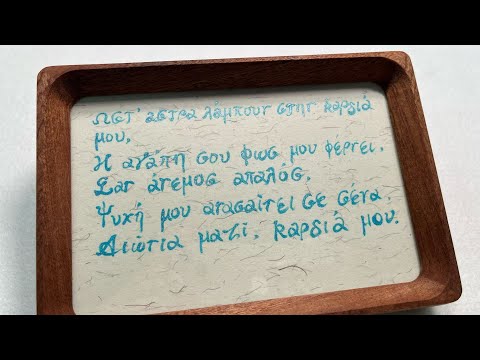 Ως τ' αστρα λάμπουν στην καρδιά
μου,
Η αγάπη σου φως μου φέρνει.
Σαν άνεμος απαλός,
Ψυχή μου ανασαίνει σε σένα.
Αιώνια μαζί, καρδιά μου.